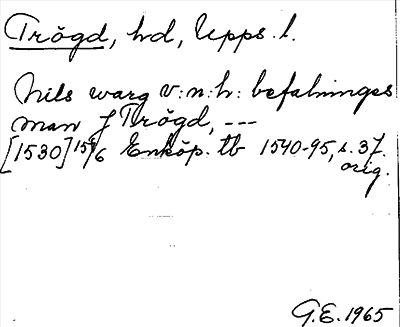 Trögd, hd, Upps. l.
Nils warg v:n:h: befalninges
man J Trögd, ---
[1530] 15/6 Enköp. tb 1540-95, s. 37.
orig.
G.E. 1965